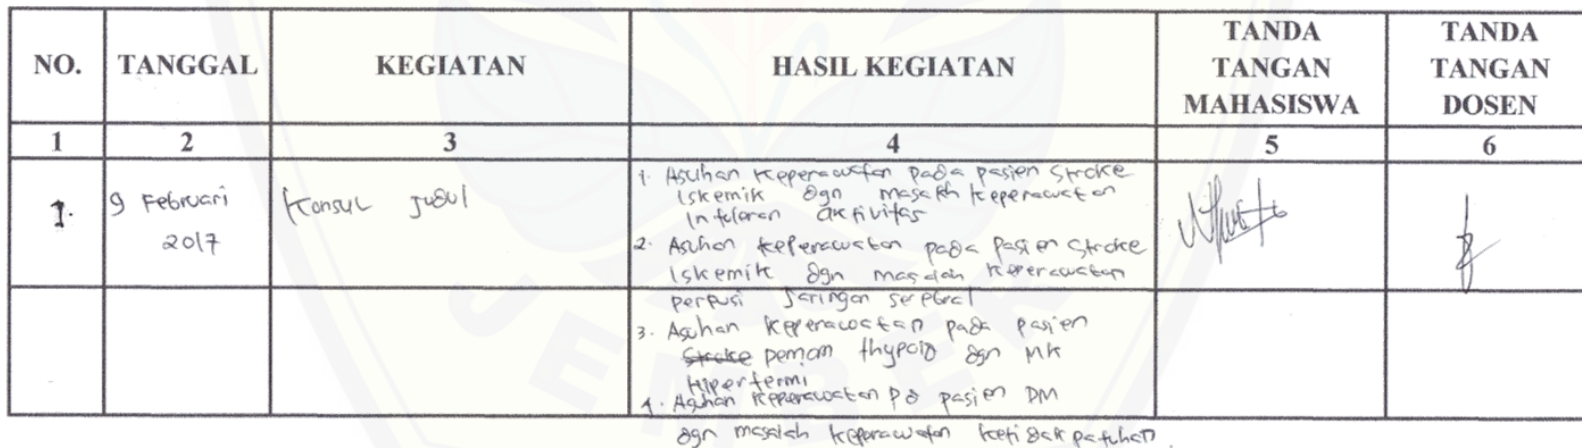 NO.
TANGGAL
KEGIATAN
HASIL KEGIATAN
TANDA
TANGAN
MAHASISWA
TANDA
TANGAN
DOSEN
1
2
3
4
5
6
1.
9 Februari
2017
Konsul Judul
1. Asuhan keperawatan pada pasien Stroke
Iskemik dgn masalah keperawatan
Intoloran aktivitas
2. Asuhan keperawatan pada pasien Stroke
Iskemik dgn masalah keperawatan
perpusi Jaringan serebral
3. Asuhan keperawatan pada pasien
Stroke pemam thypoid dgn MK
Hipertermi
4. Asuhan keperawatan pd pasien DM
dgn masalah keperawatan ketidakpatuhan.
JEMBER